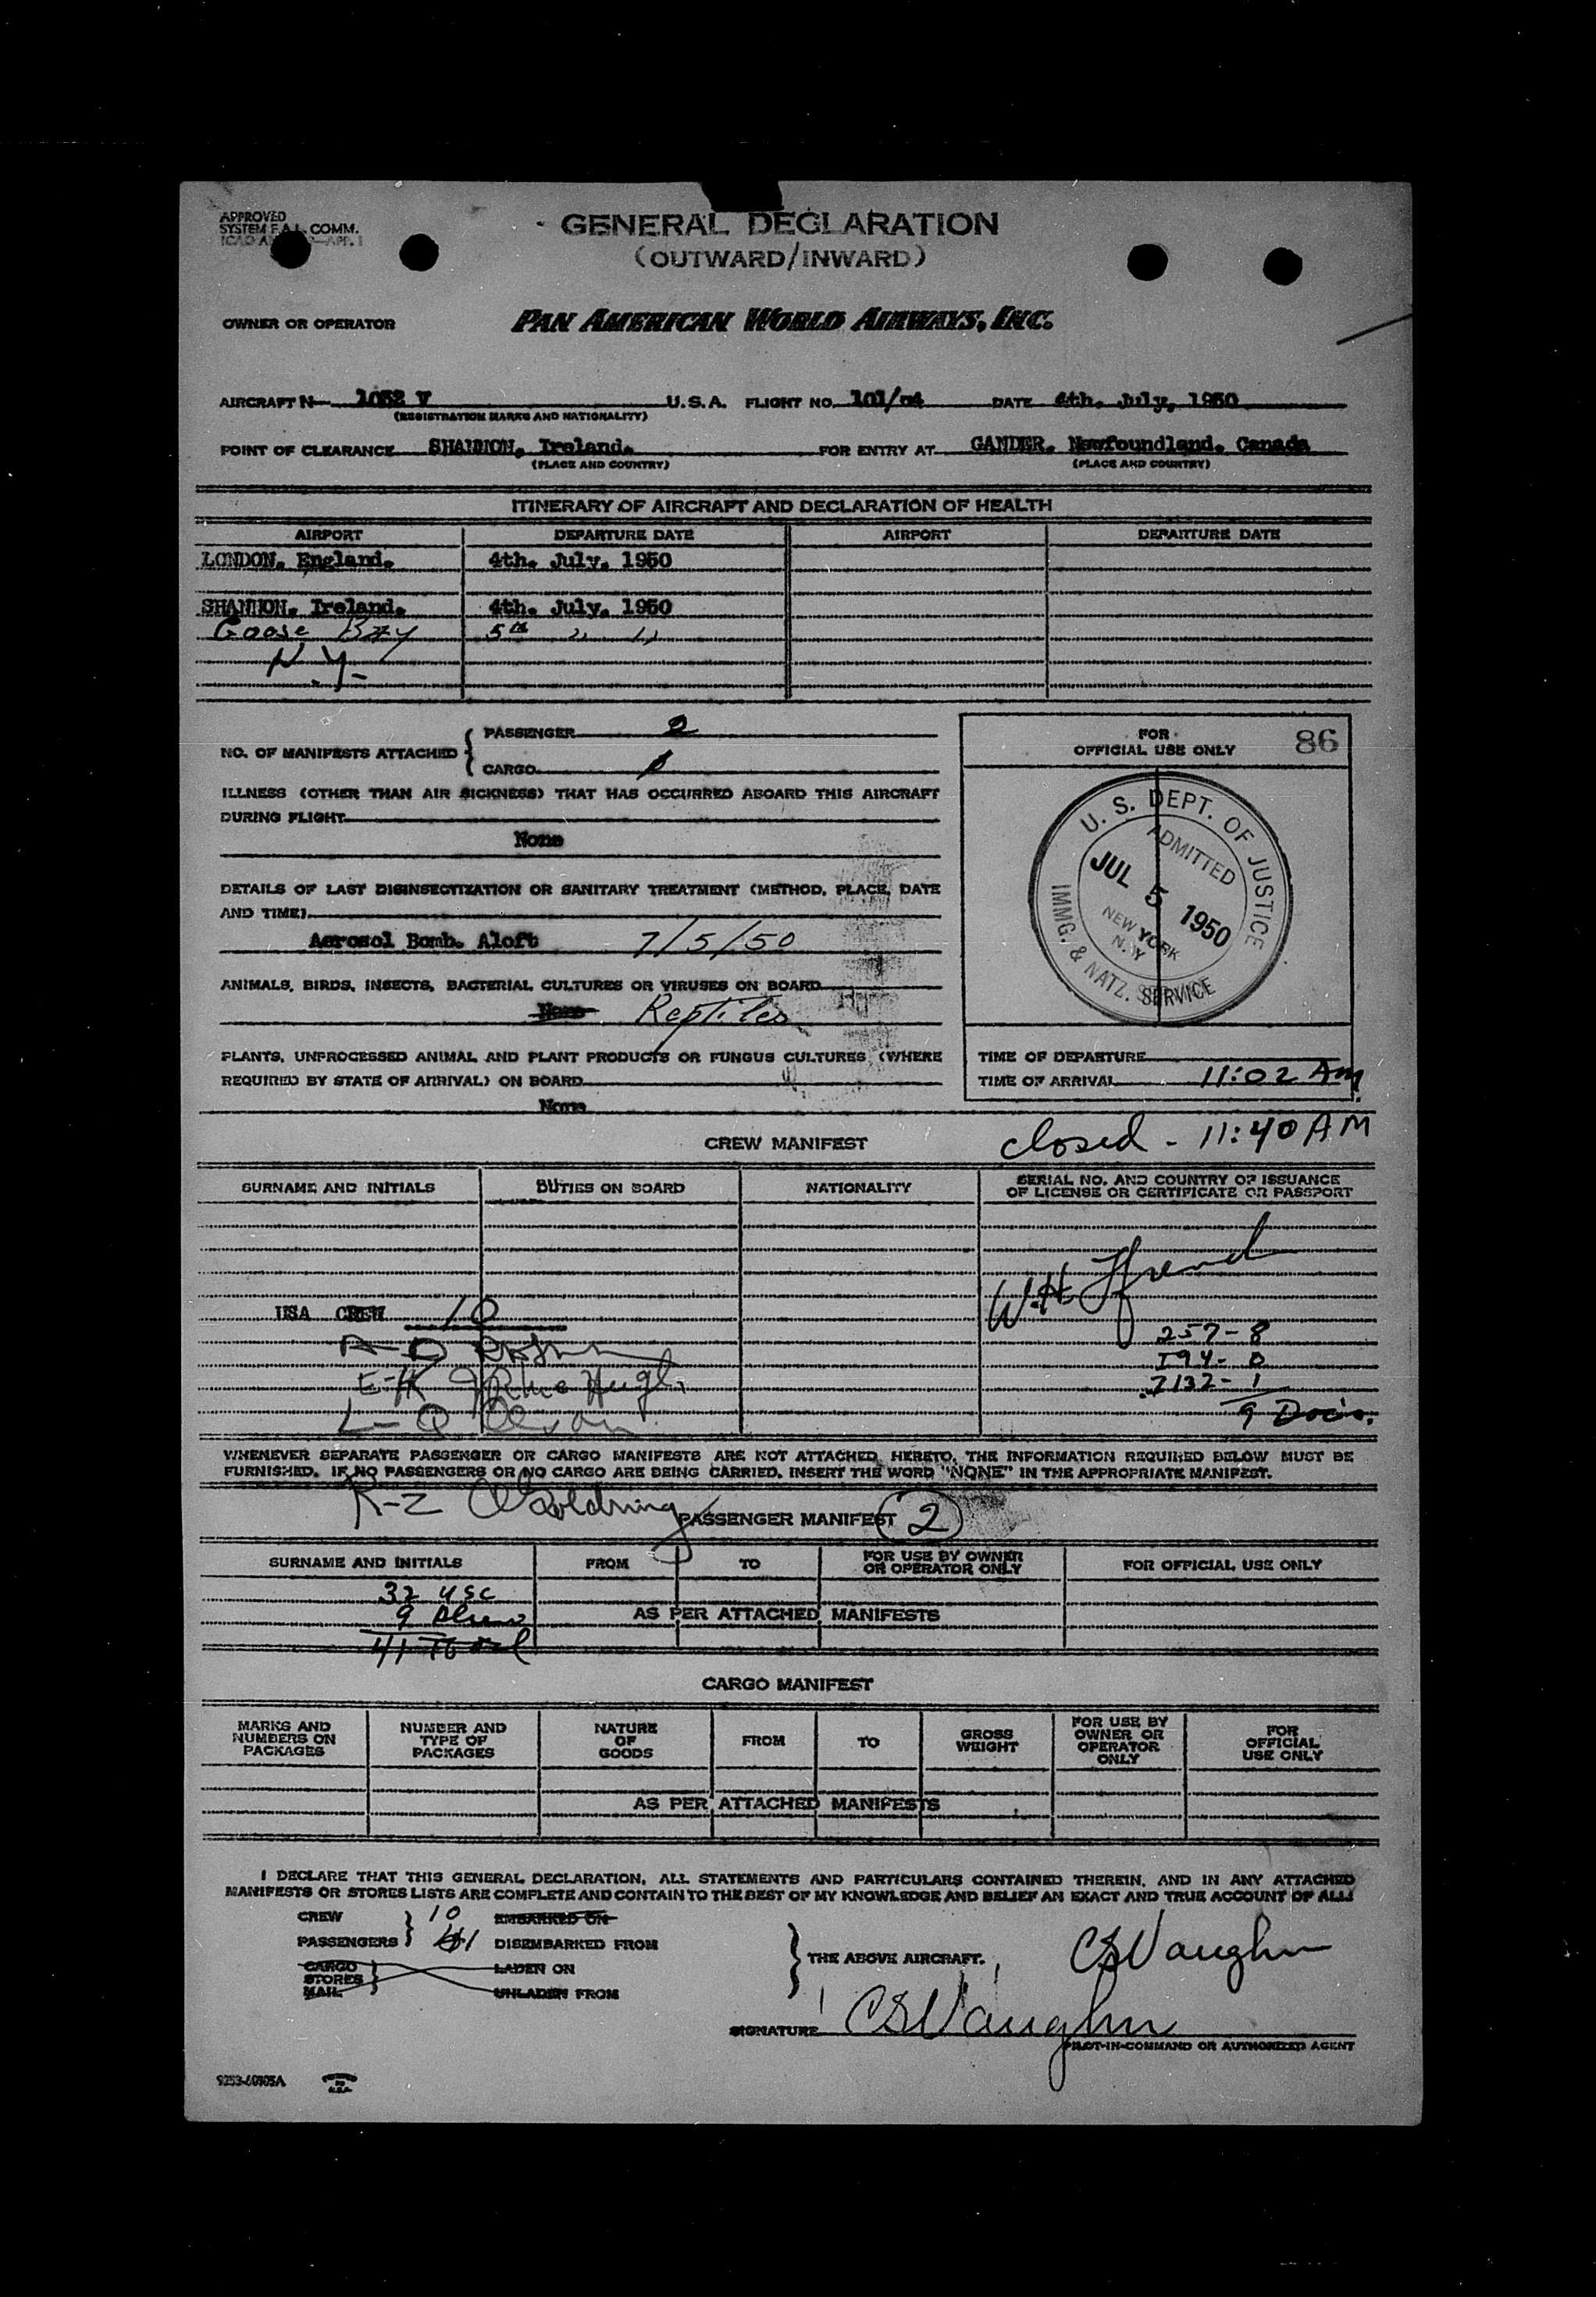 APPROVED
SYSTEM F.A.L. COMM.
GENERAL DECLARATION
(OUTWARD/INWARD)
OWNER OR OPERATOR PAN AMERICAN WORLD AIRWAYS, INC.
AIRCRAFT N- 1032 V U.S.A. FLIGHT NO. 101/04 DATE 4th. July, 1950
(REGISTRATION MARKS AND NATIONALITY)
POINT OF CLEARANCE SHANNON, Ireland. FOR ENTRY AT GANDER, Newfoundland. Canada
(PLACE AND COUNTRY) (PLACE AND COUNTRY)
ITINERARY OF AIRCRAFT AND DECLARATION OF HEALTH
AIRPORT DEPARTURE DATE AIRPORT DEPARTURE DATE
LONDON. England. 4th. July. 1950
SHANNON. Ireland. 4th. July. 1950
Goose Bay 5th " "
N.Y.
NO. OF MANIFESTS ATTACHED { PASSENGER 2
CARGO 1
FOR
OFFICIAL USE ONLY 86
ILLNESS (OTHER THAN AIR SICKNESS) THAT HAS OCCURRED ABOARD THIS AIRCRAFT
DURING FLIGHT
None
U. S. DEPT. OF JUSTICE
ADMITTED
JUL 5 1950
NEW YORK
N.Y
IMMG. & NATZ. SERVICE
DETAILS OF LAST DISINSECTIZATION OR SANITARY TREATMENT (METHOD, PLACE, DATE
AND TIME)
Aerosol Bomb. Aloft 7/5/50
ANIMALS, BIRDS, INSECTS, BACTERIAL CULTURES OR VIRUSES ON BOARD
None Reptiles
PLANTS, UNPROCESSED ANIMAL AND PLANT PRODUCTS OR FUNGUS CULTURES (WHERE
REQUIRED BY STATE OF ARRIVAL) ON BOARD
None
TIME OF DEPARTURE
TIME OF ARRIVAL 11:02 AM
closed - 11:40 AM
CREW MANIFEST
SURNAME AND INITIALS DUTIES ON BOARD NATIONALITY SERIAL NO. AND COUNTRY OF ISSUANCE
OF LICENSE OR CERTIFICATE OR PASSPORT
W.H.
USA CREW 10
257-8
I94- 0
7132- 1
9 Docs.
WHENEVER SEPARATE PASSENGER OR CARGO MANIFESTS ARE NOT ATTACHED HERETO, THE INFORMATION REQUIRED BELOW MUST BE
FURNISHED. IF NO PASSENGERS OR NO CARGO ARE BEING CARRIED, INSERT THE WORD "NONE" IN THE APPROPRIATE MANIFEST.
PASSENGER MANIFEST 2
SURNAME AND INITIALS FROM TO FOR USE BY OWNER
OR OPERATOR ONLY FOR OFFICIAL USE ONLY
32 USC
9 Aliens
41 Total
AS PER ATTACHED MANIFESTS
CARGO MANIFEST
MARKS AND
NUMBERS ON
PACKAGES NUMBER AND
TYPE OF
PACKAGES NATURE
OF
GOODS FROM TO GROSS
WEIGHT FOR USE BY
OWNER OR
OPERATOR
ONLY FOR
OFFICIAL
USE ONLY
AS PER ATTACHED MANIFESTS
I DECLARE THAT THIS GENERAL DECLARATION, ALL STATEMENTS AND PARTICULARS CONTAINED THEREIN, AND IN ANY ATTACHED
MANIFESTS OR STORES LISTS ARE COMPLETE AND CONTAIN TO THE BEST OF MY KNOWLEDGE AND BELIEF AN EXACT AND TRUE ACCOUNT OF ALL:
CREW 10 EMBARKED ON
PASSENGERS 41 DISEMBARKED FROM
CARGO LADEN ON
STORES
MAIL UNLADEN FROM
THE ABOVE AIRCRAFT. CSVaughn
SIGNATURE CSVaughn
PILOT-IN-COMMAND OR AUTHORIZED AGENT